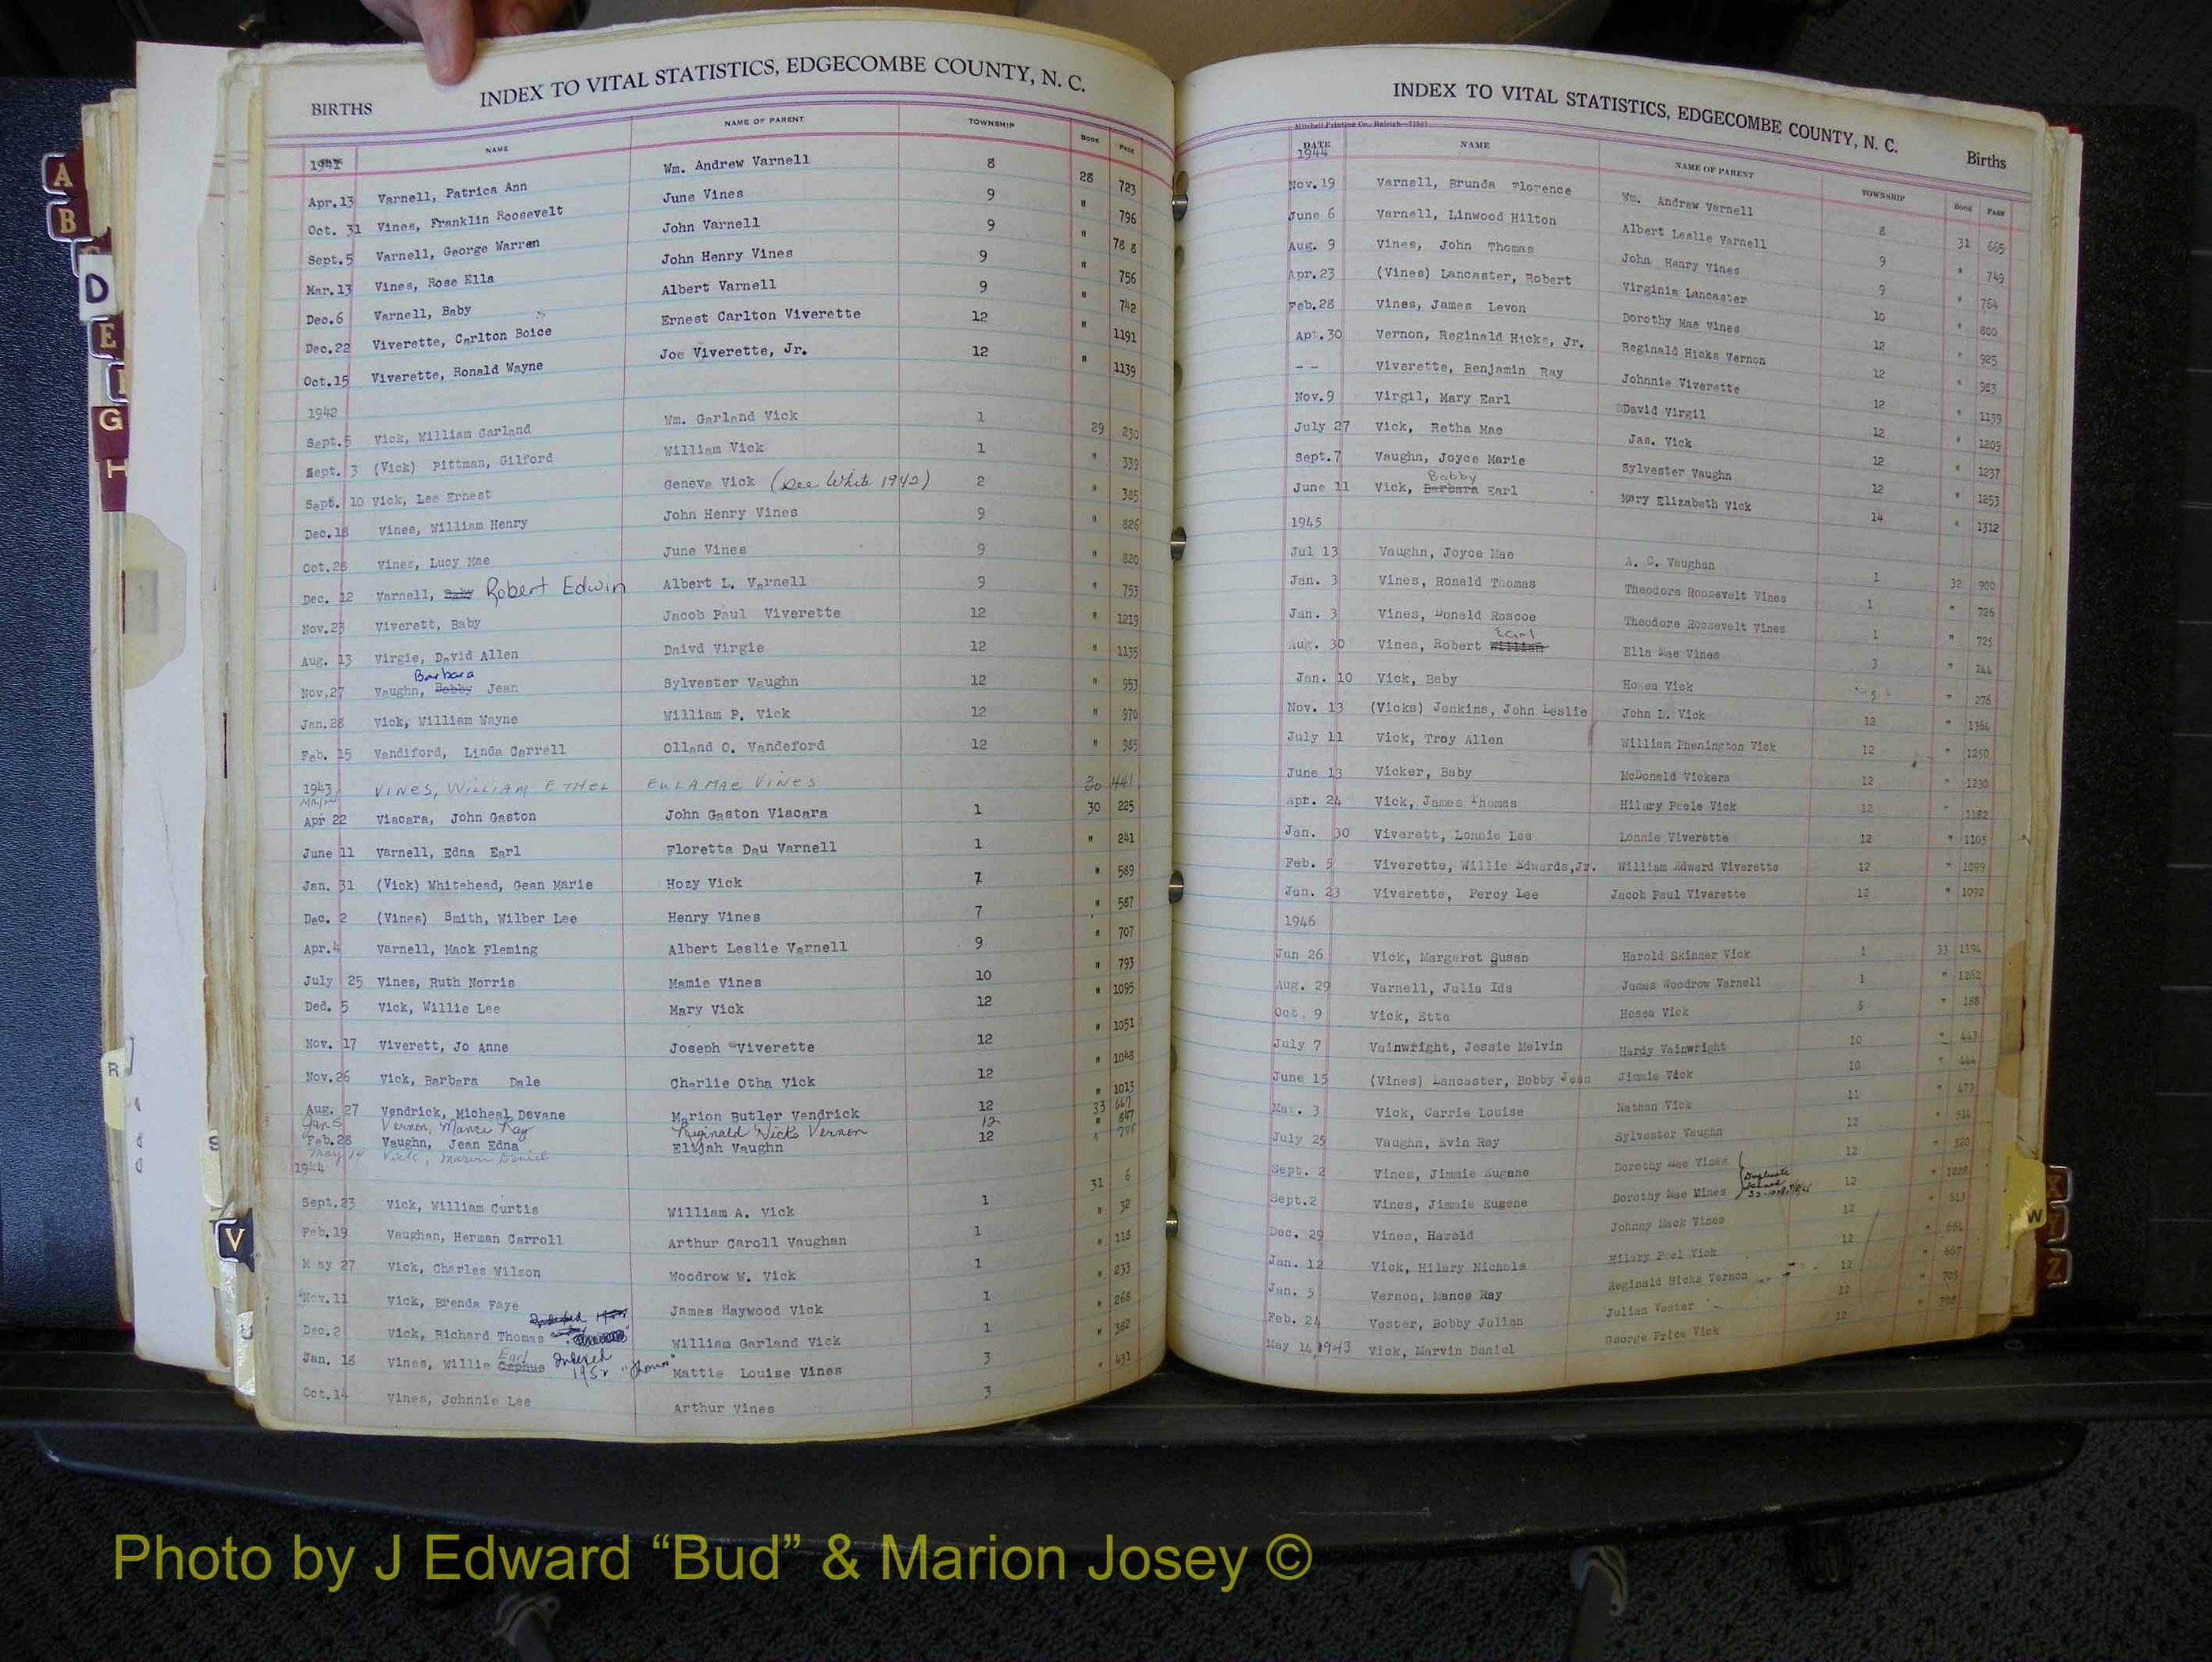 INDEX TO VITAL STATISTICS, EDGECOMBE COUNTY, N. C.
BIRTHS
NAME NAME OF PARENT TOWNSHIP BOOK PAGE
1941
Apr.13 Varnell, Patrica Ann Wm. Andrew Varnell 8 28 723
Oct. 31 Vines, Franklin Roosevelt June Vines 9 " 796
Sept.5 Varnell, George Warren John Varnell 9 " 788
Mar.13 Vines, Rose Ella John Henry Vines 9 " 756
Dec.6 Varnell, Baby Albert Varnell 9 " 742
Dec.22 Viverette, Carlton Boice Ernest Carlton Viverette 12 " 1191
Oct.15 Viverette, Ronald Wayne Joe Viverette, Jr. 12 " 1139
1942
Sept.5 Vick, William Garland Wm. Garland Vick 1 29 230
Sept. 3 (Vick) Pittman, Gilford William Vick 1 " 339
Sept. 10 Vick, Lee Ernest Geneva Vick (See White 1942) 2 " 385
Dec.18 Vines, William Henry John Henry Vines 9 " 826
Oct.28 Vines, Lucy Mae June Vines 9 " 820
Dec. 12 Varnell, Baby Robert Edwin Albert L. Varnell 9 " 753
Nov.23 Viverett, Baby Jacob Paul Viverette 12 " 1219
Aug. 13 Virgie, David Allen Daivd Virgie 12 " 1135
Barbara
Nov.27 Vaughn, Bobby Jean Sylvester Vaughn 12 " 953
Jan.28 Vick, William Wayne William P. Vick 12 " 970
Feb. 15 Vandiford, Linda Carrell Olland O. Vandeford 12 " 985
1943 VINES, WILLIAM ETHEL EULA MAE VINES 30 441
Apr 22 Viacara, John Gaston John Gaston Viacara 1 30 225
June 11 Varnell, Edna Earl Floretta Dau Varnell 1 " 241
Jan. 31 (Vick) Whitehead, Gean Marie Hozy Vick 7 " 589
Dec. 2 (Vines) Smith, Wilber Lee Henry Vines 7 " 587
Apr.4 Varnell, Mack Fleming Albert Leslie Varnell 9 " 707
July 25 Vines, Ruth Norris Mamie Vines 10 " 793
Ded. 5 Vick, Willie Lee Mary Vick 12 " 1095
Nov. 17 Viverett, Jo Anne Joseph Viverette 12 " 1051
Nov.26 Vick, Barbara Dale Charlie Otha Vick 12 " 1048
Aug. 27 Vendrick, Micheal Devane Marion Butler Vendrick 12 " 1013
Jan 5 Vernon, Mance Ray Reginald Hicks Vernon 12 33 667
Feb.28 Vaughn, Jean Edna Elijah Vaughn 12 " 847
May 14 Vick, Marvin Daniel
1944
Sept.23 Vick, William Curtis William A. Vick 1 31 6
Feb.19 Vaughan, Herman Carroll Arthur Caroll Vaughan 1 " 32
May 27 Vick, Charles Wilson Woodrow W. Vick 1 " 118
Nov.11 Vick, Brenda Faye James Haywood Vick 1 " 233
Dec.2 Vick, Richard Thomas William Garland Vick 1 " 268
Earl
Jan. 18 Vines, Willie Cephus Indexed 1952 Mattie Louise Vines 3 " 382
Oct.14 Vines, Johnnie Lee Arthur Vines 3 " 431
INDEX TO VITAL STATISTICS, EDGECOMBE COUNTY, N. C.
Births
Mitchell Printing Co., Raleigh
DATE NAME NAME OF PARENT TOWNSHIP BOOK PAGE
1944
Nov.19 Varnell, Brunda Florence Wm. Andrew Varnell 8 31 665
June 6 Varnell, Linwood Hilton Albert Leslie Varnell 9 " 749
Aug. 9 Vines, John Thomas John Henry Vines 9 " 764
Apr.23 (Vines) Lancaster, Robert Virginia Lancaster 10 " 800
Feb.28 Vines, James Levon Dorothy Mae Vines 12 " 925
Apt.30 Vernon, Reginald Hicks, Jr. Reginald Hicks Vernon 12 " 983
-- Viverette, Benjamin Ray Johnnie Viverette 12 " 1139
Nov.9 Virgil, Mary Earl David Virgil 12 " 1209
July 27 Vick, Retha Mae Jas. Vick 12 " 1237
Sept.7 Vaughn, Joyce Marie Sylvester Vaughn 12 " 1253
Bobby
June 11 Vick, Barbara Earl Mary Elizabeth Vick 14 " 1312
1945
Jul 13 Vaughn, Joyce Mae A. C. Vaughan 1 32 900
Jan. 3 Vines, Ronald Thomas Theodore Roosevelt Vines 1 " 726
Jan. 3 Vines, Donald Roscoe Theodore Roosevelt Vines 1 " 725
Earl
Aug. 30 Vines, Robert William Ella Mae Vines 3 " 244
Jan. 10 Vick, Baby Hosea Vick 5 " 276
Nov. 13 (Vicks) Jenkins, John Leslie John L. Vick 12 " 1364
July 11 Vick, Troy Allen William Phenington Vick 12 " 1250
June 13 Vicker, Baby McDonald Vickers 12 " 1230
Apr. 24 Vick, James Thomas Hilary Peele Vick 12 " 1182
Jan. 30 Viverett, Lonnie Lee Lonnie Viverette 12 " 1105
Feb. 5 Viverette, Willie Edwards,Jr. William Edward Viverette 12 " 1099
Jan. 23 Viverette, Percy Lee Jacob Paul Viverette 12 " 1092
1946
Jun 26 Vick, Margaret Susan Harold Skinner Vick 1 33 1194
Aug. 29 Varnell, Julia Ida James Woodrow Varnell 1 " 1262
Oct. 9 Vick, Etta Hosea Vick 5 " 188
July 7 Vainwright, Jessie Melvin Hardy Vainwright 10 " 443
June 15 (Vines) Lancaster, Bobby Jean Jimmie Vick 10 " 444
Mar. 3 Vick, Carrie Louise Nathan Vick 11 " 473
July 25 Vaughn, Evin Ray Sylvester Vaughn 12 " 514
Sept. 2 Vines, Jimmie Eugane Dorothy Mae Vines 12 " 520
Sept.2 Vines, Jimmie Eugene Dorothy Mae Mines Duplicate 12 " 1028
Dec. 29 Vines, Harold Johnny Mack Vines 12 " 613
Jan. 12 Vick, Hilary Nichols Hilary Peel Vick 12 " 664
Jan. 5 Vernon, Mance Ray Reginald Hicks Vernon 12 " 667
Feb. 24 Vester, Bobby Julian Julian Vester 12 " 705
May 14,1943 Vick, Marvin Daniel George Price Vick 12 "
A
B
D
E
G
H
R
S
V
W
X
Y
Z
Photo by J Edward “Bud” & Marion Josey ©